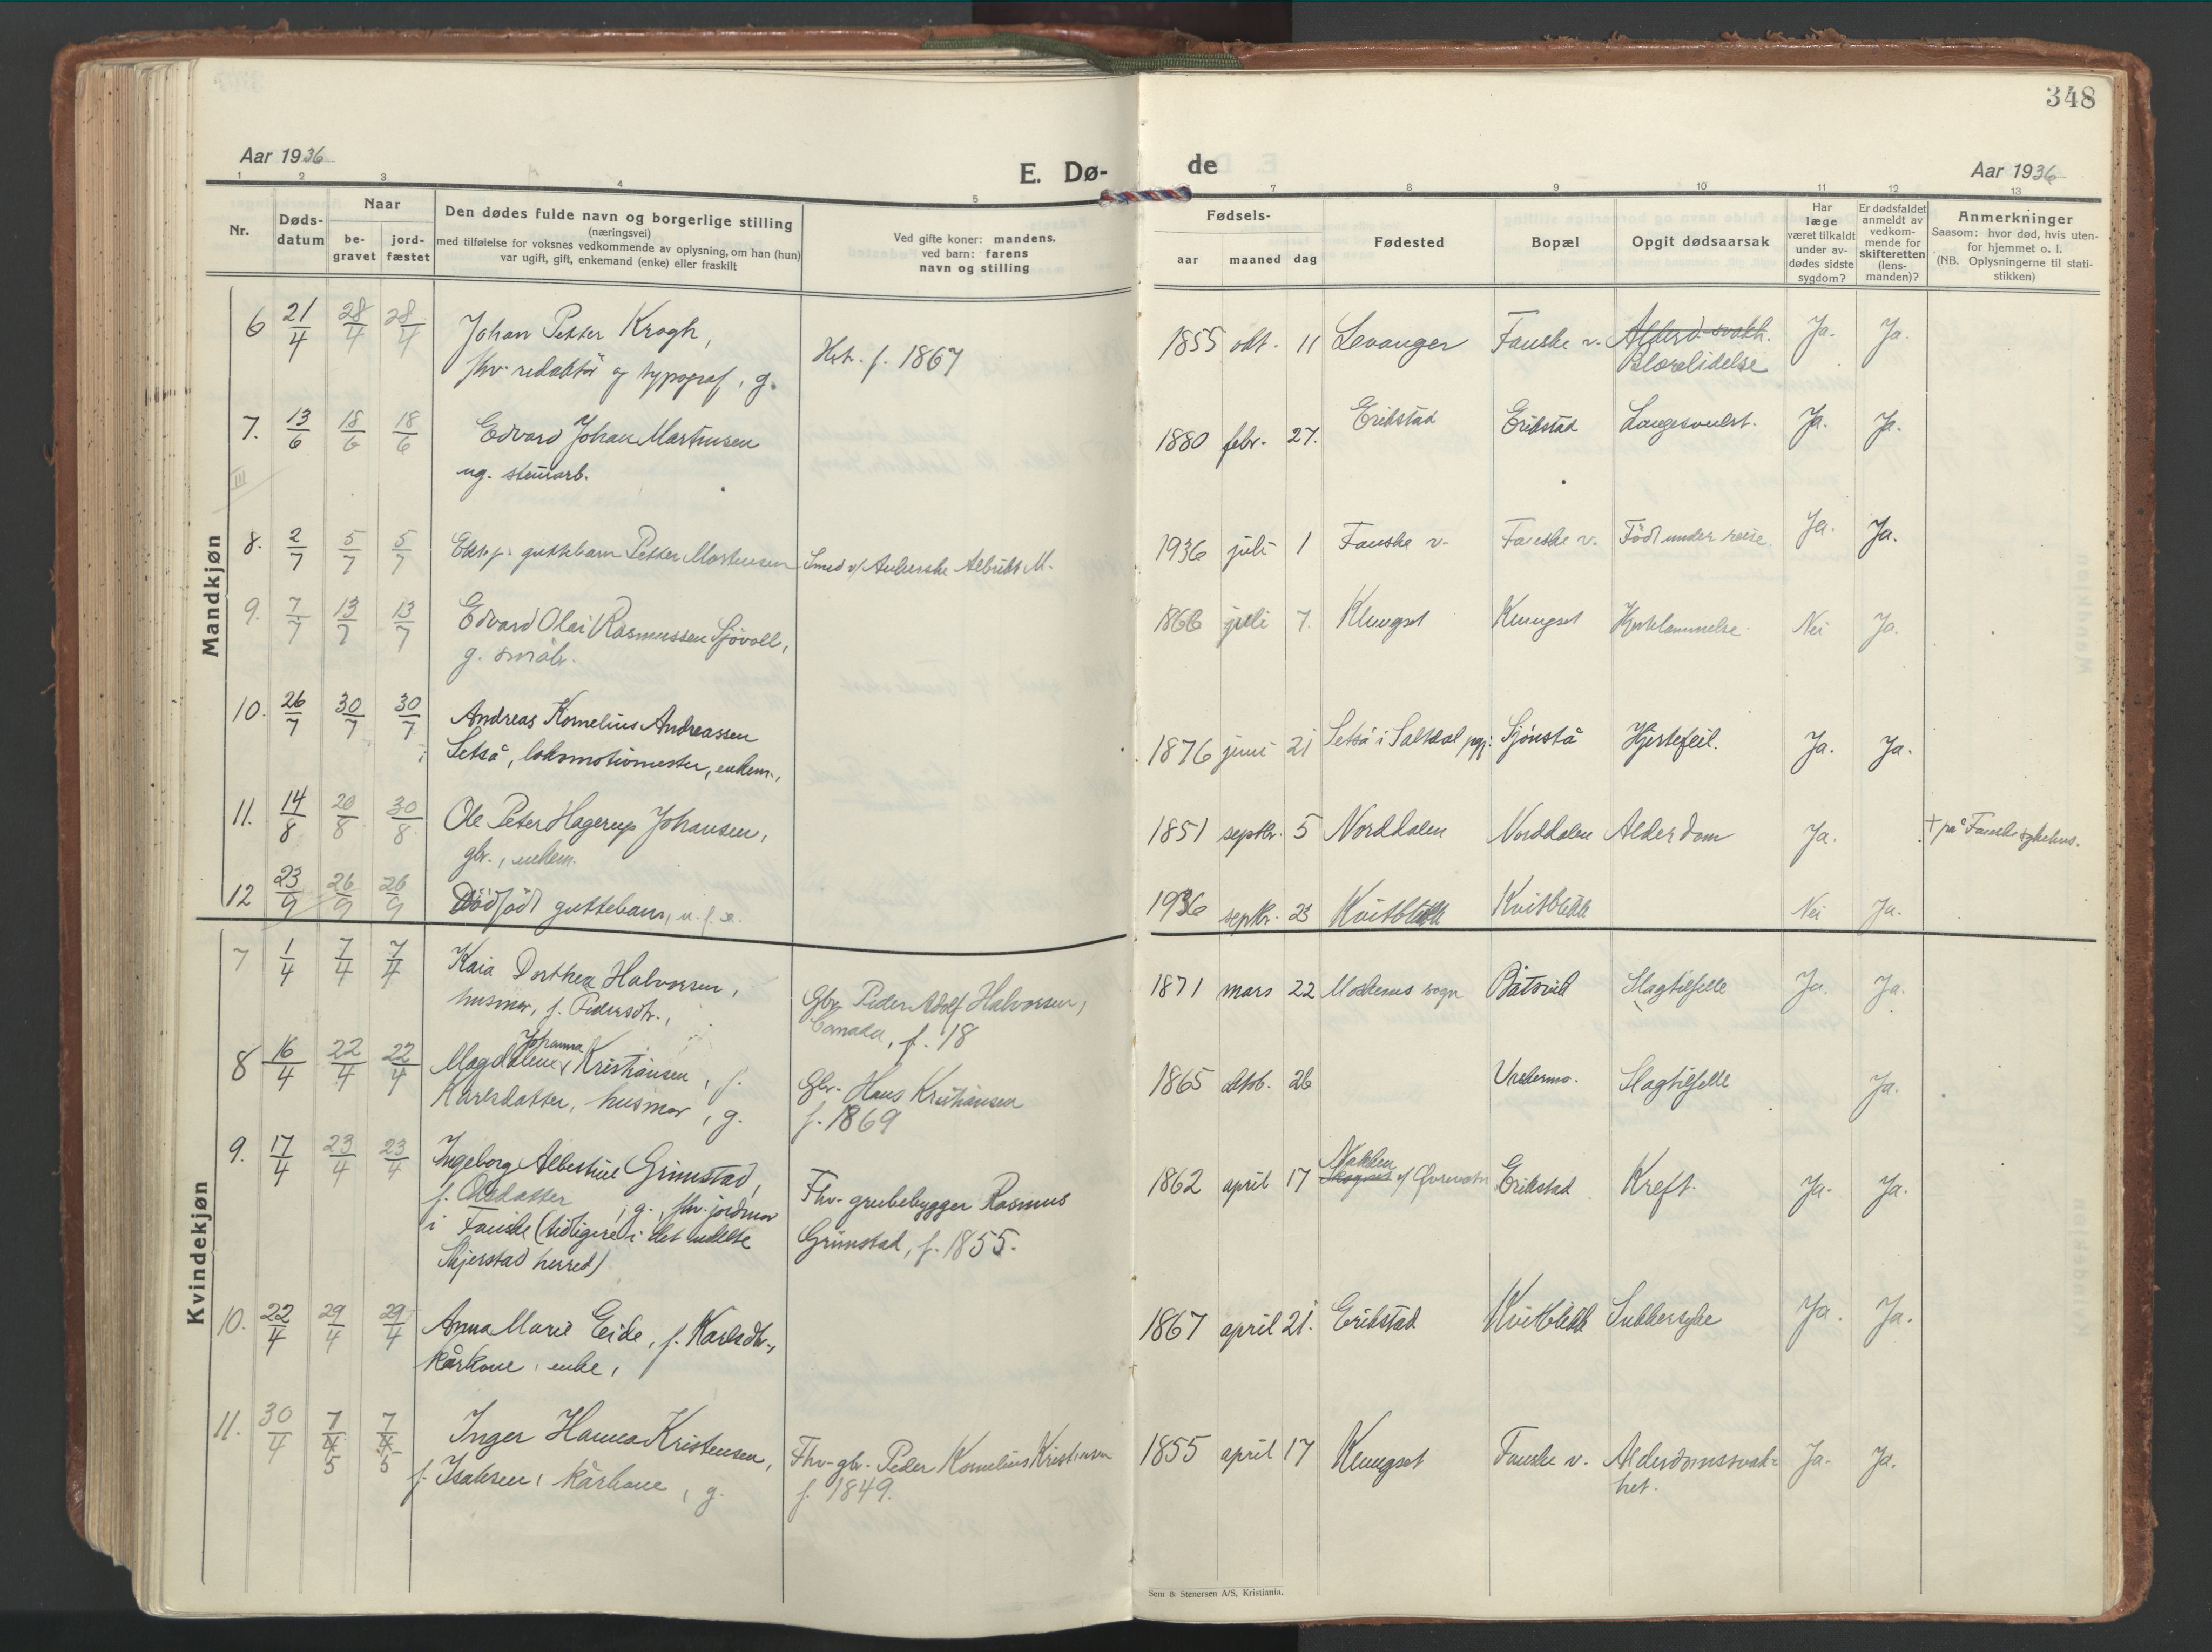 348
Aar 1936
E. Dø-
de
Aar 1936
1 2 3 4 5 7 8 9 10 11 12 13
Nr.
Døds-
datum
Naar
be-
gravet
jord-
fæstet
Den dødes fulde navn og borgerlige stilling
(næringsvei)
med tilføielse for voksnes vedkommende av oplysning, om han (hun)
var ugift, gift, enkemand (enke) eller fraskilt
Ved gifte koner: mandens,
ved barn: farens
navn og stilling
Fødsels-
aar maaned dag
Fødested
Bopæl
Opgit dødsaarsak
Har
læge
været tilkaldt
under av-
dødes sidste
sygdom?
Er dødsfaldet
anmeldt av
vedkom-
mende for
skifteretten
(lens-
manden)?
Anmerkninger
Saasom: hvor død, hvis uten-
for hjemmet o. l.
(NB. Oplysningerne til stati-
stikken)
Mandkjøn
6 21/4 28/4 28/4 Johan Petter Krogh,
fhv. redaktör og typograf, g.
Hst. f. 1867
1855 okt. 11 Levanger Fauske v. Alderd.svakh. Ja. Ja.
Blærelidelse
7. 13/6 18/6 18/6 Edvard Johan Martinsen
ug. steinarb.
1880 febr. 27. Erikstad Erikstad Lungesvulst. Ja. Ja.
III
8. 2/7 5/7 5/7 guttebarn Petter Mortensen Smed v/ Ankerske Albrikt M.
1936 juli 1 Fauske v. Fauske v. Född under reise. Ja. Ja.
9. 7/7 13/7 13/7 Edvard Olai Rasmussen Sjövoll,
g. småbr.
1866 juli 7. Klungset Klungset Hjertelammelse. Nei Ja.
10. 26/7 30/7 30/7 Andreas Kornelius Andreassen
Setså, lokomotivmester, enkem.,
1876 juni 21 Setså i Saltdal pgj. Sjönstå Hjertefeil. Ja. Ja.
11. 14/8 20/8 30/8 Ole Peter Hagerup Johansen,
gbr., enkem.
1851 septbr. 5 Norddalen Norddalen Alderdom Ja. † på Fauske sykehus.
12 23/9 26/9 26/9 Dödfödt guttebarn, u.f.æ.
1936 septbr. 23 Kvitblikk Kvitblikk Nei Ja.
Kvindekjøn
7 1/4 7/4 7/4 Kaia Dorthea Halvorsen,
husmor, f. Pedersdtr.,
Gbr. Peder Adolf Halvorsen,
Canada, f. 18
1871 mars 22 sogn Båtsvik Slagtilfelle Ja. Ja.
8 16/4 22/4 22/4 Johanna
Magdalena Kristiansen, f.
Karlsdatter, husmor, g.
Gbr. Hans Kristiansen
f. 1869
1865 oktob. 26 Vestermo. Slagtilfelle Ja.
9. 17/4 23/4 23/4 Ingeborg Albertine Grimstad,
f. Olsdatter, g., fhv. jordmor
i Fauske (tidligere i det udelte
Skjerstad herred)
Fhv. grubebygger Rasmus
Grimstad, f. 1855.
1862 april 17 Nakken
v/ Övrevatn Erikstad Kreft. Ja. Ja.
10. 22/4 29/4 29/4 Anna Marie Eide, f. Karlsdtr.,
kårkone, enke,
1867 april 21. Erikstad Kvitblikk Sukkersyke Ja. Ja.
11. 30/4 7/5 7/5 Inger Hanna Kristensen,
f. Isaksen, kårkone, g.
Fhv. gbr. Peder Kornelius Kristensen
f. 1849.
1855 april 17 Klungset Fauske v. Alderdomssvak-
het. Ja. Ja.
Sem & Stenersen A/S, Kristiania.